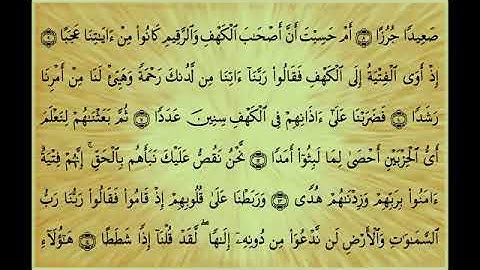 صَعِيدًا جُرُزًا ۝ أَمْ حَسِبْتَ أَنَّ أَصْحَٰبَ ٱلْكَهْفِ وَٱلرَّقِيمِ كَانُوا۟ مِنْ ءَايَٰتِنَا عَجَبًا ۝
إِذْ أَوَى ٱلْفِتْيَةُ إِلَى ٱلْكَهْفِ فَقَالُوا۟ رَبَّنَآ ءَاتِنَا مِن لَّدُنكَ رَحْمَةً وَهَيِّئْ لَنَا مِنْ أَمْرِنَا
رَشَدًا ۝ فَضَرَبْنَا عَلَىٰٓ ءَاذَانِهِمْ فِى ٱلْكَهْفِ سِنِينَ عَدَدًا ۝ ثُمَّ بَعَثْنَٰهُمْ لِنَعْلَمَ
أَىُّ ٱلْحِزْبَيْنِ أَحْصَىٰ لِمَا لَبِثُوٓا۟ أَمَدًا ۝ نَّحْنُ نَقُصُّ عَلَيْكَ نَبَأَهُم بِٱلْحَقِّ ۚ إِنَّهُمْ فِتْيَةٌ
ءَامَنُوا۟ بِرَبِّهِمْ وَزِدْنَٰهُمْ هُدًى ۝ وَرَبَطْنَا عَلَىٰ قُلُوبِهِمْ إِذْ قَامُوا۟ فَقَالُوا۟ رَبُّنَا رَبُّ
ٱلسَّمَٰوَٰتِ وَٱلْأَرْضِ لَن نَّدْعُوَا۟ مِن دُونِهِۦٓ إِلَٰهًا ۖ لَّقَدْ قُلْنَآ إِذًا شَطَطًا ۝ هَٰٓؤُلَآءِ